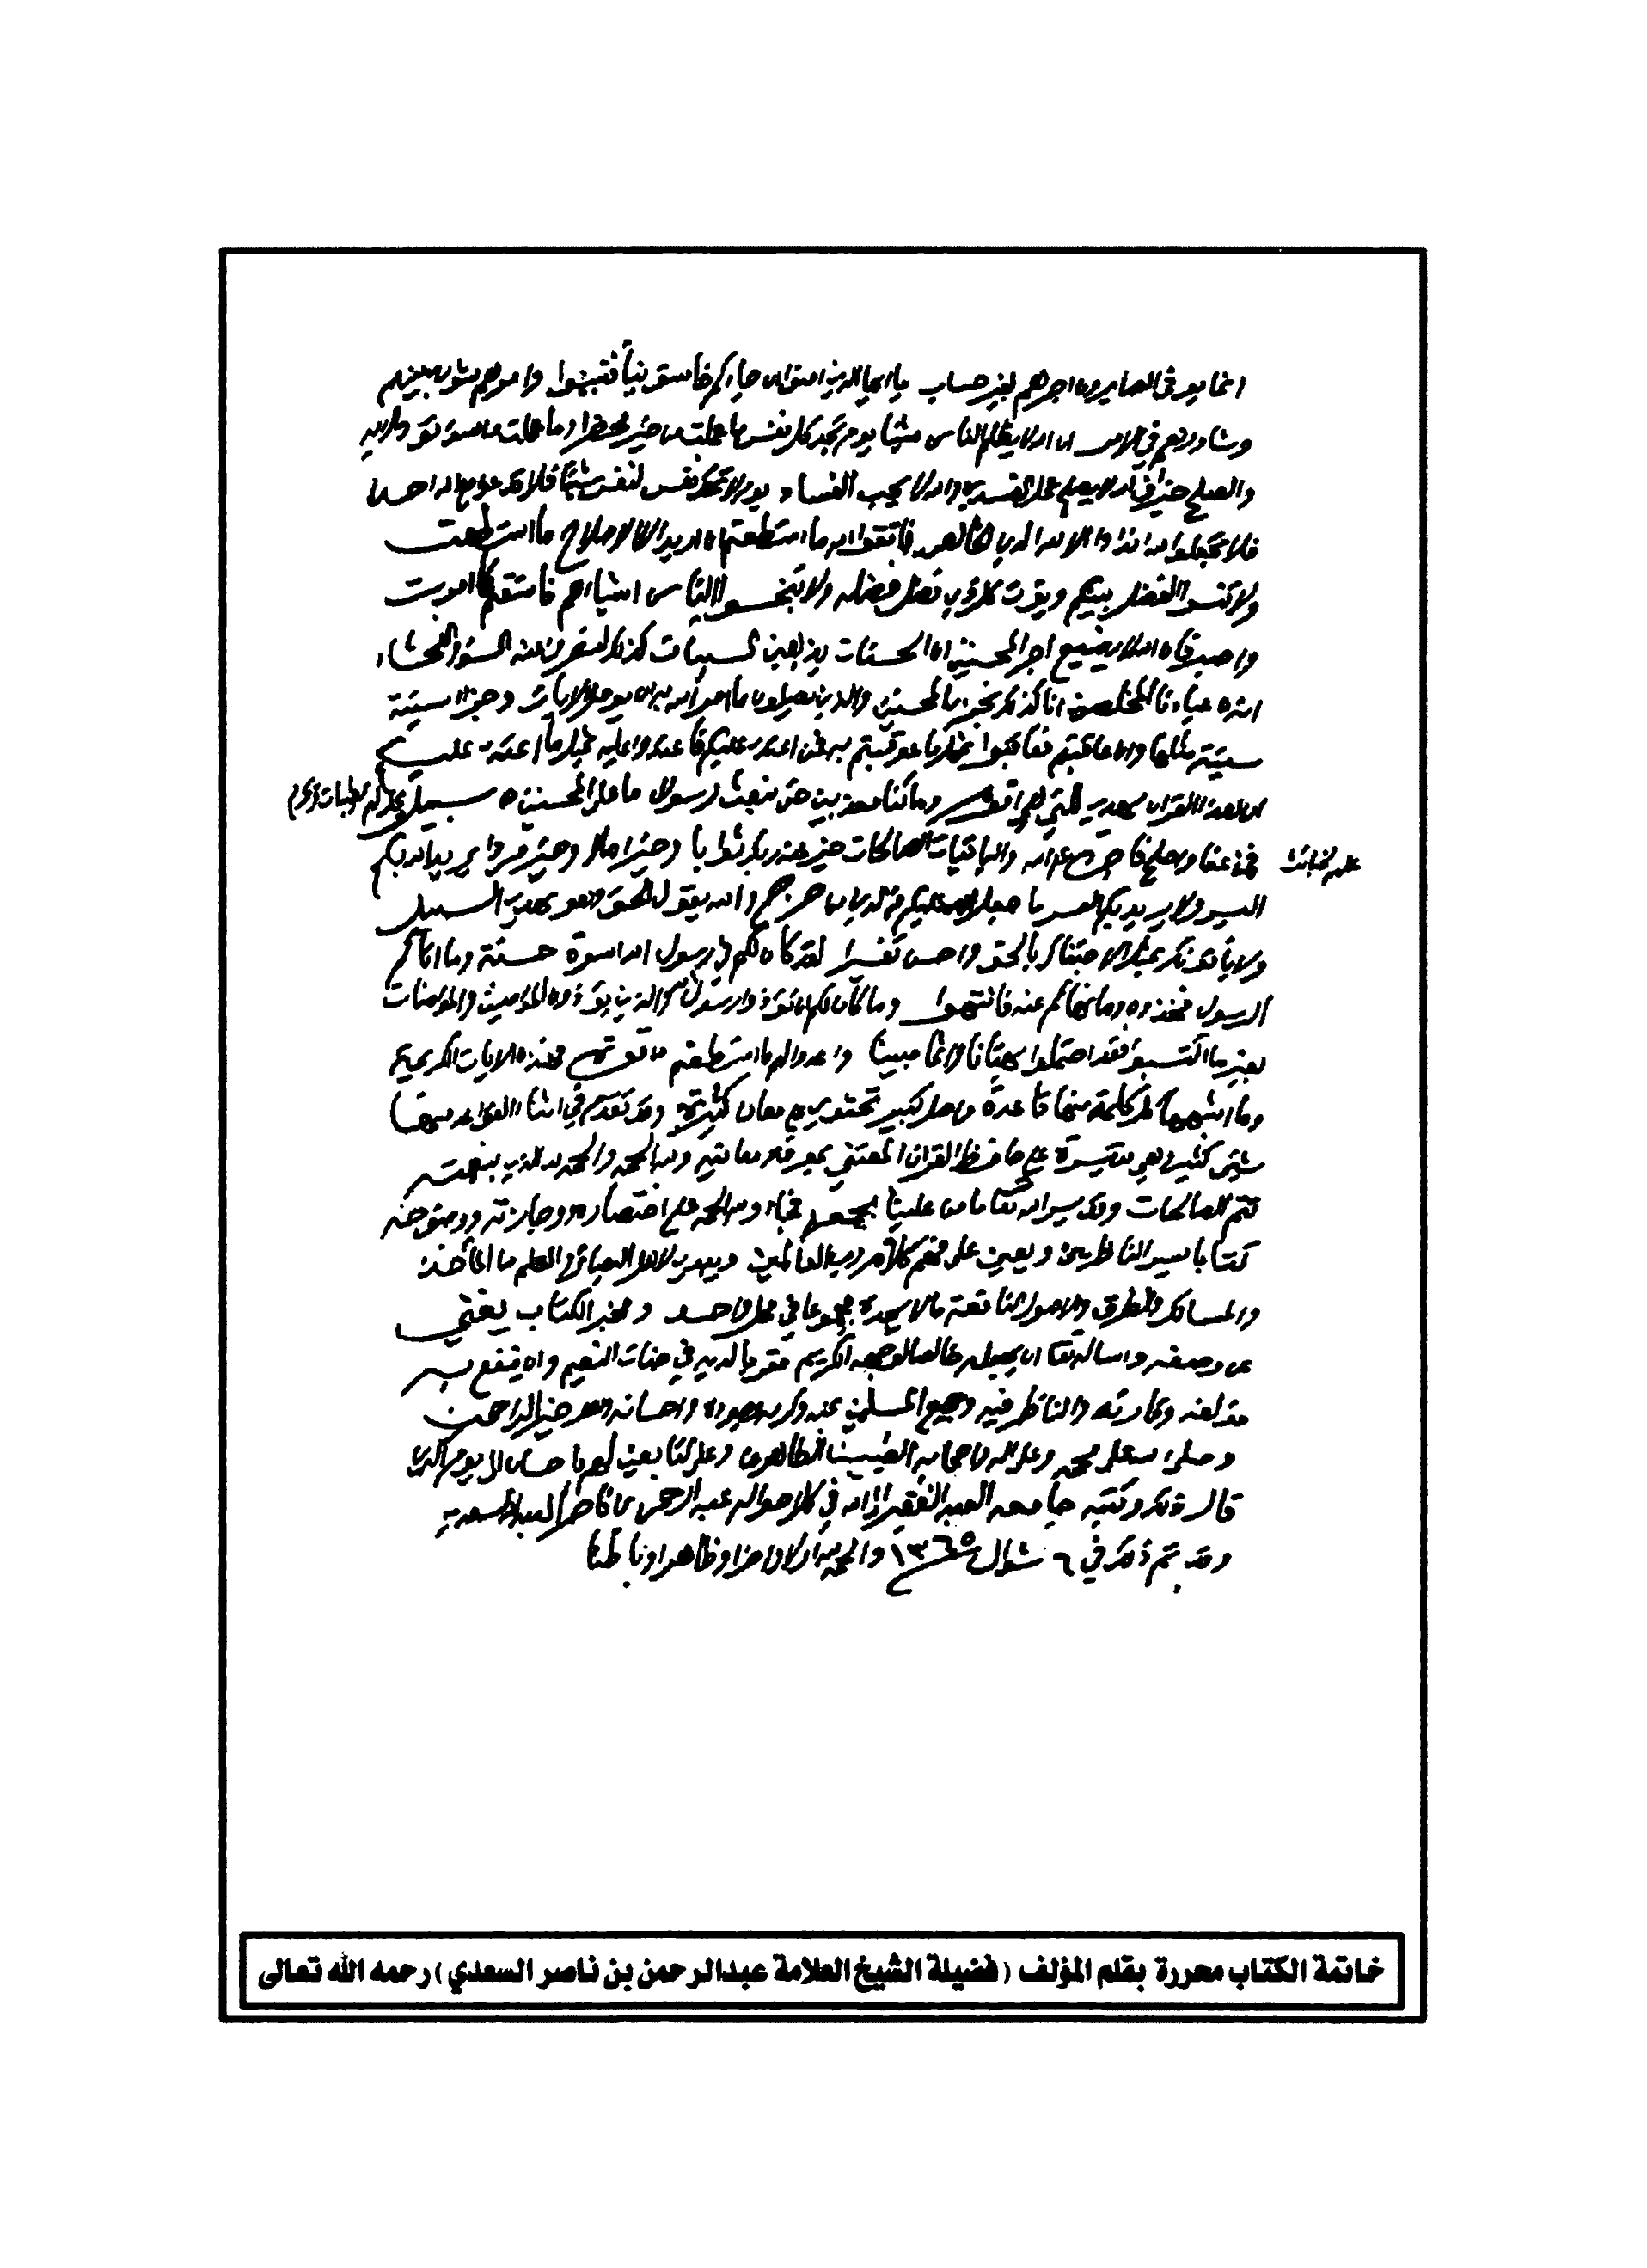 انما يوفى الصابرون اجرهم بغير حساب يا ايها الذين امنوا ان جاءكم فاسق بنبأ فتبينوا وامرهم شورى بينهم
وشاورهم في الامر ان الله لا يظلم الناس شيئا يوم تجد كل نفس ما عملت من خير محضرا وما عملت من سوء تود
والصلح خير ان الله لا يصلح عمل المفسدين والله لا يحب الفساد يوم لا تملك نفس لنفس شيئا فلا تدع مع الله احدا
فلا تجعلوا لله اندادا الا لله الدين الخالص فاتقوا الله ما استطعتم ان اريد الا الاصلاح ما استطعت
ولا تنسوا الفضل بينكم ويؤت كل ذي فضل فضله ولا تبخسوا الناس اشياءهم فاستقم كما امرت
واصبر فان الله لا يضيع اجر المحسنين ان الحسنات يذهبن السيئات كذلك لنصرف عنه السوء والفحشاء
انه من عبادنا المخلصين انا كذلك نجزي المحسنين والذين يصلون ما امر الله به ان يوصل وجزاء سيئة
سيئة مثلها وان عاقبتم فعاقبوا بمثل ما عوقبتم به فمن اعتدى عليكم فاعتدوا عليه بمثل ما اعتدى عليكم
ان هذا القران يهدي للتي هي اقوم وما كنا معذبين حتى نبعث رسولا ما على المحسنين من سبيل ويحل لهم الطيبات ويحرم
عليهم الخبائث
فمن عفا واصلح فاجره على الله والباقيات الصالحات خير عند ربك ثوابا وخير املا وخير مردا يريد الله بكم
اليسر ولا يريد بكم العسر ما جعل عليكم في الدين من حرج والله يقول الحق وهو يهدي السبيل
ولا ياتونك بمثل الا جئناك بالحق واحسن تفسيرا لقد كان لكم في رسول الله اسوة حسنة وما اتاكم
الرسول فخذوه وما نهاكم عنه فانتهوا وما كان لكم ان تؤذوا رسول الله والذين يؤذون المؤمنين والمؤمنات
بغير ما اكتسبوا فقد احتملوا بهتانا واثما مبينا واعدوا لهم ما استطعتم من قوة فهذه الايات الكريمة
وما اشبهها كل كلمة منها قاعدة واصل كبير تحتوي على معان كثيرة وقد تقدم في اثناء القواعد منها
شيء كثير وهي متيسرة على حافظ القران المعتني بمعرفة معانيه ولله الحمد والحمد لله الذي بنعمته
تتم الصالحات وقد يسر الله تعالى ما من علينا بجمعه فجاء ولله الحمد على اختصاره ووجازته ووضوحه
كتابا يسر الناظرين ويعين على فهم كلام رب العالمين ويبدي لاهل البصائر والعلم من المآخذ
والمسالك والطرق والاصول النافعة ما لا يجده مجموعا في محل واحد ومخبر الكتاب يغني
عن وصفه واسال الله تعالى ان يجعله خالصا لوجهه الكريم مقربا لديه في جنات النعيم وان ينفع به
مؤلفه وقارئه والناظر فيه وجميع المسلمين بمنه وكرمه وجوده واحسانه وهو خير الراحمين
وصلى الله على محمد وعلى اله واصحابه الطيبين الطاهرين وعلى التابعين لهم باحسان الى يوم الدين
قال ذلك وكتبه جامعه العبد الفقير الى الله في كل احواله عبد الرحمن بن ناصر ال عبد الله السعدي
وقد تم ذلك في ٦ شوال سنة ١٣٦٥ والحمد لله اولا واخرا وظاهرا وباطنا
خاتمة الكتاب محررة بقلم المؤلف (فضيلة الشيخ العلامة عبدالرحمن بن ناصر السعدي) رحمه الله تعالى